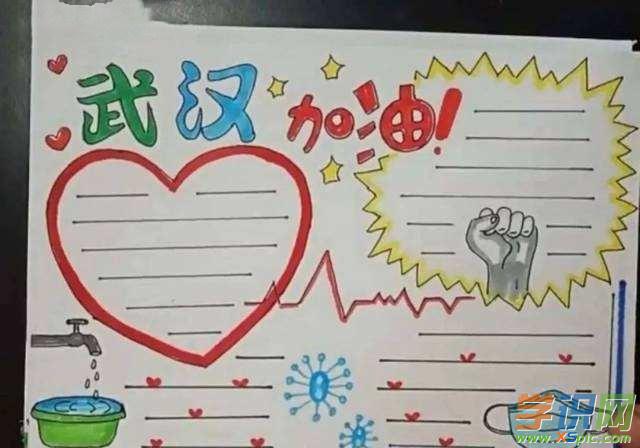 武汉加油!
学识网
www.XSpic.com